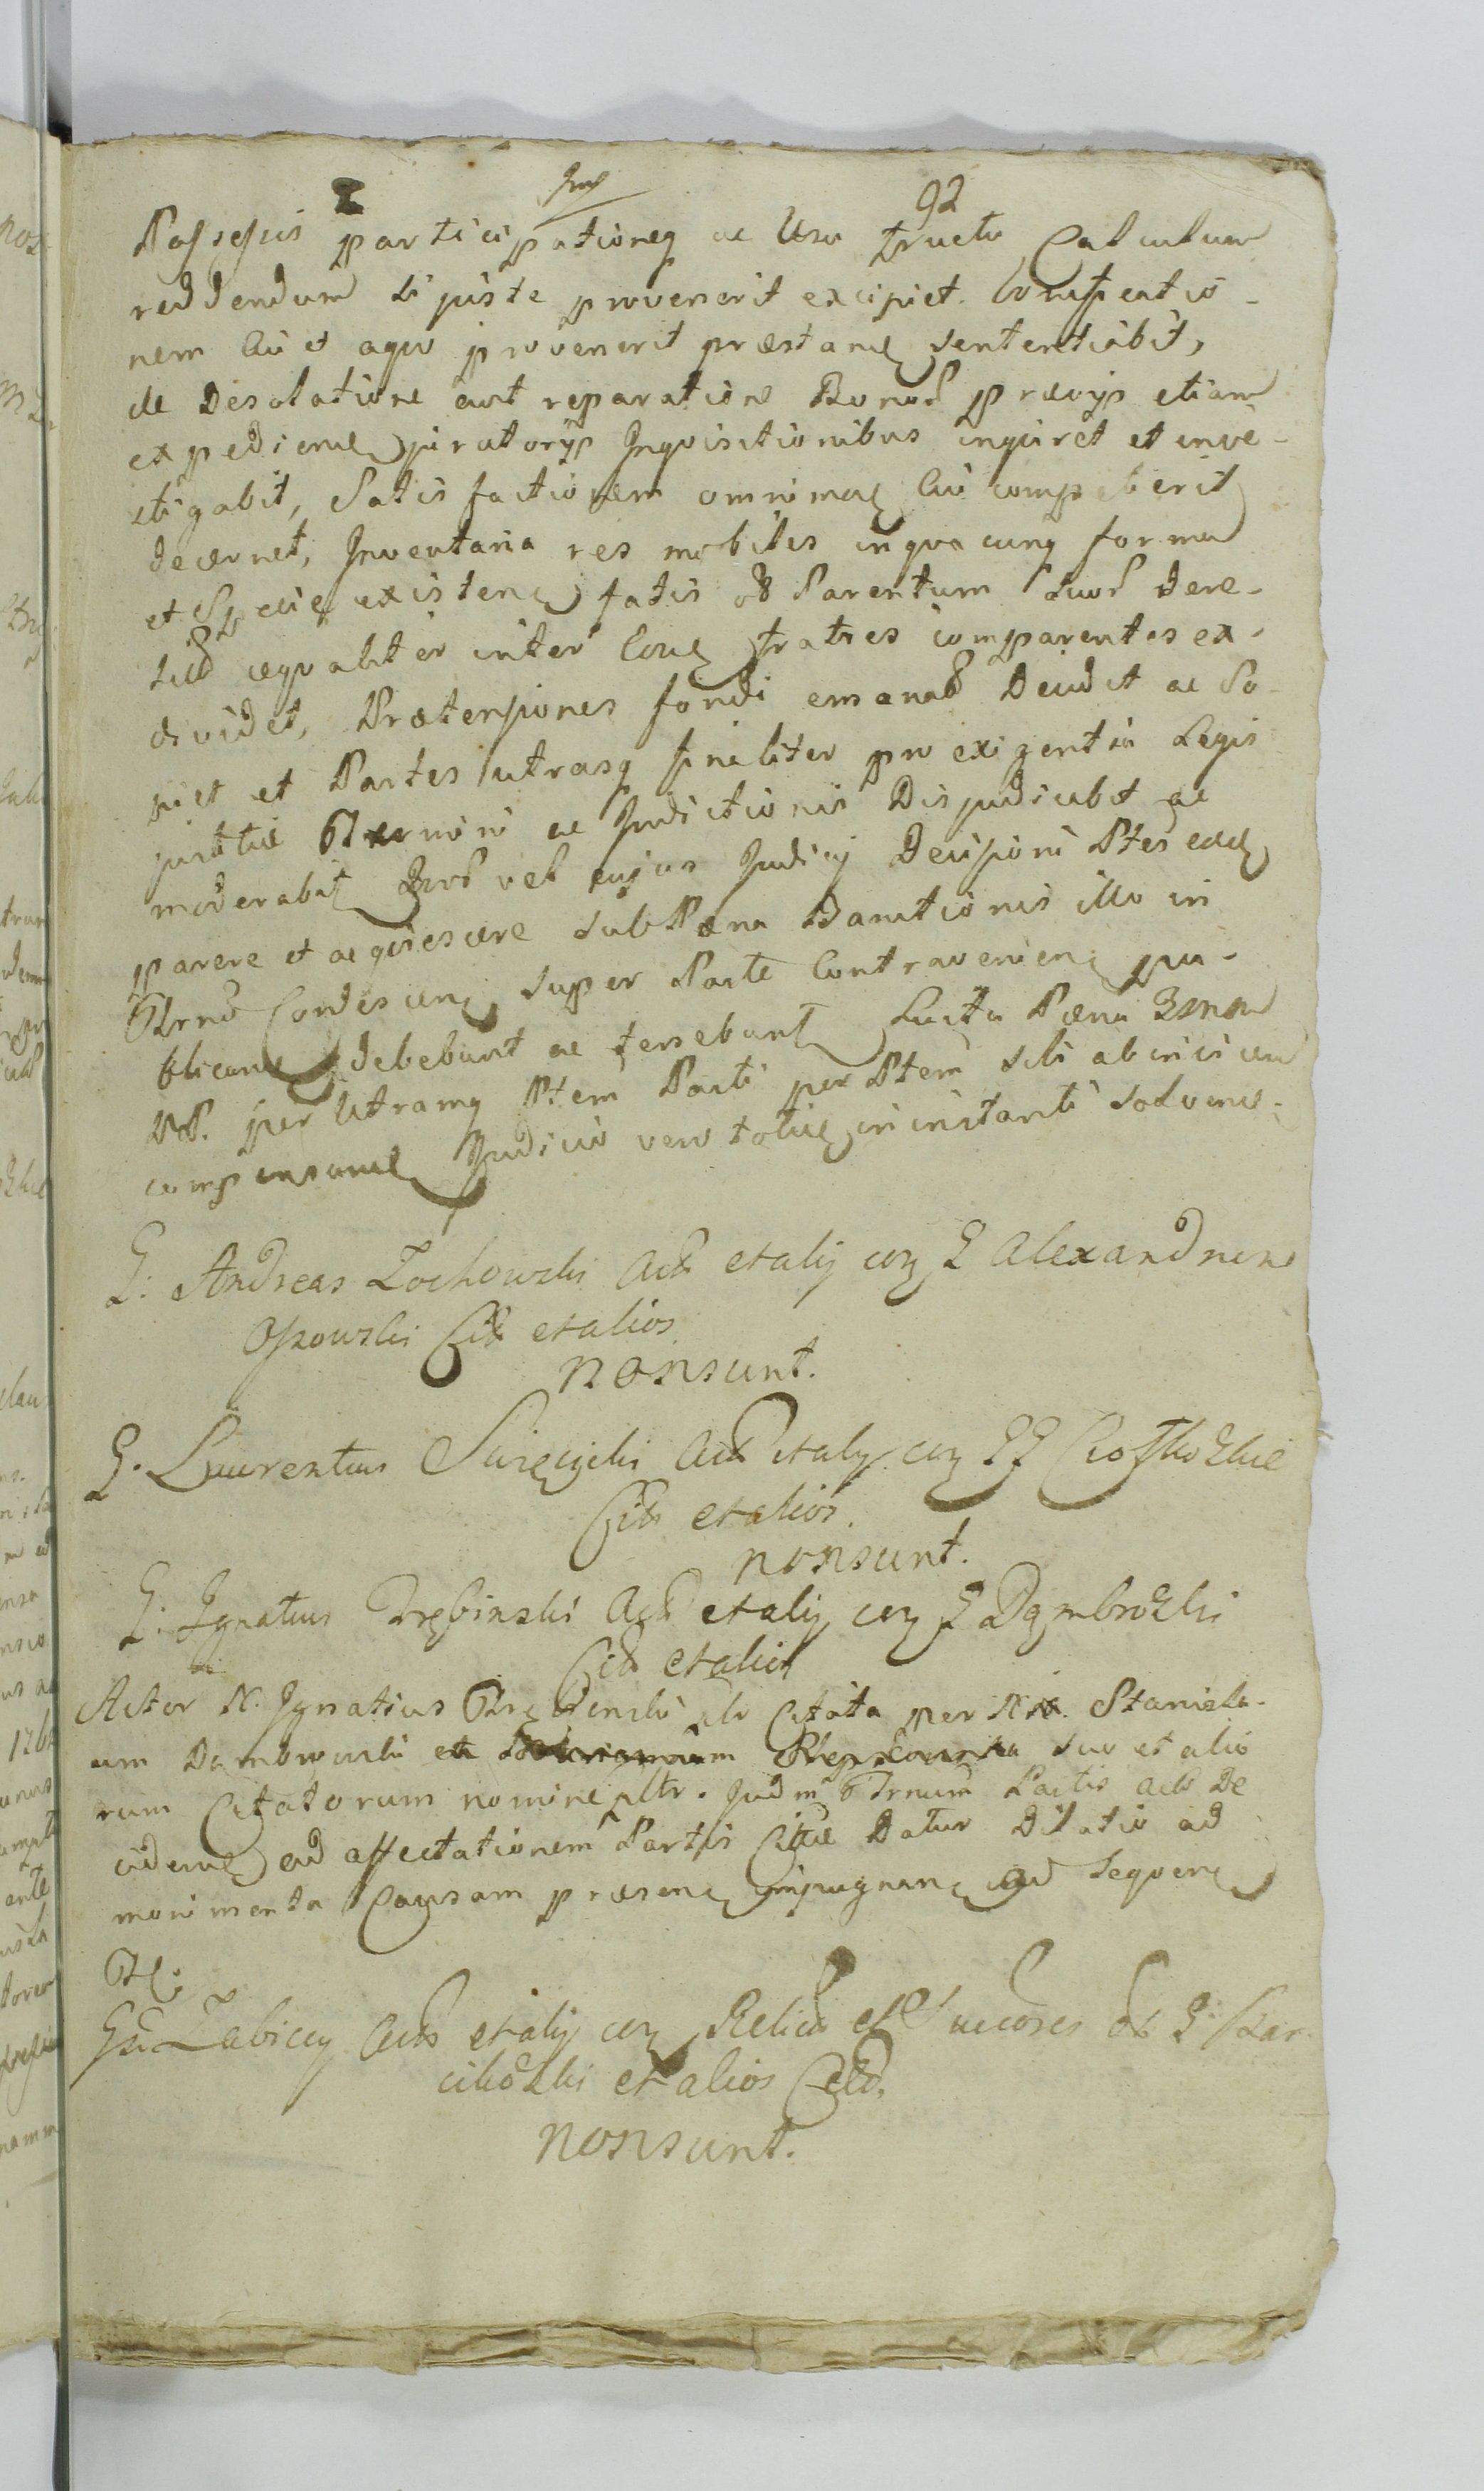 92
Possessis participationeq ac Usu fructu Calculum
reddendum si juste provenerit excipiet. Compensatio-
nem Cui et aquo provenerit præstanđ sententiabit,
de Desolatione aut reparatione Bonor prævijs etiam
expedienđ juratorijs Inqvisitionibus inqviret et inve-
stigabit, Satisfactionem omnimođ Cui competierit
decernet, Inventaria res mobiles inqvacunq forma
et Specie existenđ fatis Parentum Suor dere-
lict æqvaliter inter Eosđ fratres comparentes ex-
dividet, Prætensiones fondi emanat Decidet ac So-
piet et Partes utrasq finaliter pro exigentia Legis
justitiæ Termini ac Juditionis Disjudicabit ac
moderabit vel cujus Judicij Decisioni Ptes eæđ
parere et acqviescere sub Pæna Bannitionis illo in
Trno Condescenđ super Parte Contravenienđ pu-
blicanđ debebunt ac tenebunt Luita Pæna
per Utramq Ptem Parti per Ptem sibi abinvicem
compensanđ Judicio vero totiđ ininstanti solvenđ.
G: Andreas Zochowski Act etalij con G Alexandrum
Ossowski Cit etalios
nonsunt.
G. Laurentius Święcicki Act etalij con GG
Cit etalios.
nonsunt.
G. Ignatius Trębinski Act etalij con G Dąmbrowski
Cit etalios
Actor N. Ignatius Trębinski Citata per N. Stanisla-
um Dambrowski et suo et alio
rum Citatorum nomine pltr. Judm Trnum Partis Act De
cidenđ ad affectationem Partis Citæ Datur Dilatio ad
monimenta Causam præsenđ impugnanđ ad seqvenđ
Tt.
Gsi Zabiccy Act etalij con Relict et Succores G. Kar-
cikowski etalios Citt.
nonsunt.